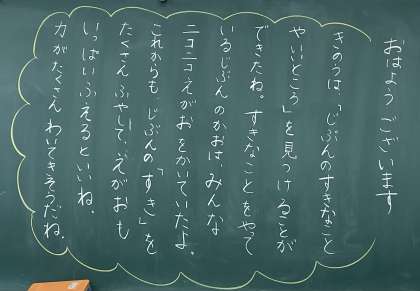 おはよう ございます
きのうは「じぶんのすきなこと
やいいところ」を見つけることが
できたね。すきなことをやって
いるじぶんのかおは、みんな
ニコニコえがおをかいていたよ。
これからも、じぶんの「すき」を
たくさん ふやして、えがおも
いっぱいふえるといいね。
力がたくさん わいてきそうだね。